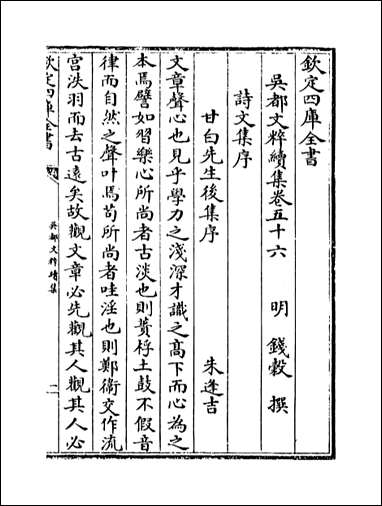 欽定四庫全書
吳都文粹續集卷五十六
明 錢榖 撰
詩文集序
甘白先生後集序
朱逢吉
文章聲心也見乎學力之淺深才識之高下而心為之
本焉譬如習樂心所尚者古淡也則蕢桴土鼓不假音
律而自然之聲叶焉苟所尚者哇淫也則鄭衛交作流
宮泆羽而去古遠矣故觀文章必先觀其人觀其人必
欽定四庫全書
吳都文粹續集